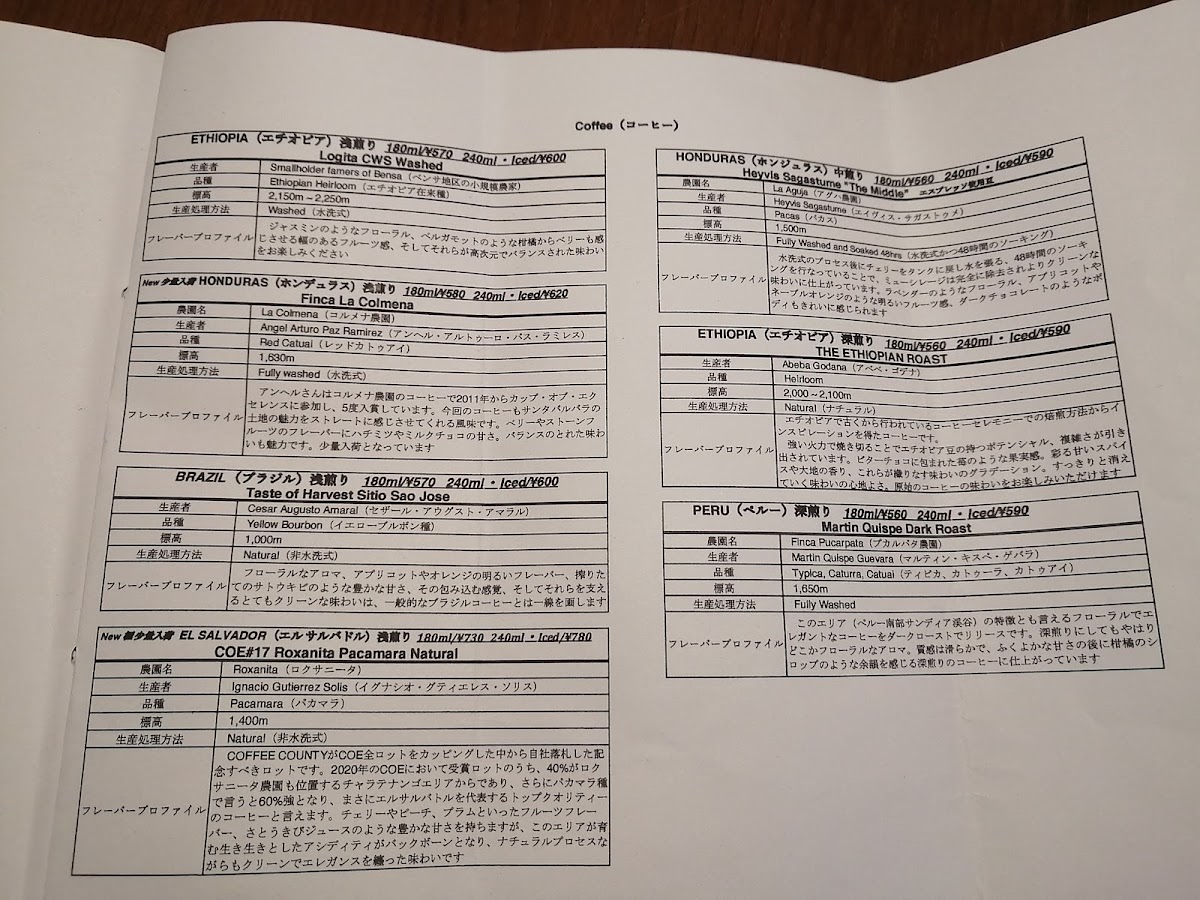 Coffee（コーヒー）
ETHIOPIA（エチオピア）浅煎り 180ml/¥570 240ml・Iced/¥600
Logita CWS Washed
生産者 Smallholder famers of Bensa（ベンサ地区の小規模農家）
品種 Ethiopian Heirloom（エチオピア在来種）
標高 2,150m～2,250m
生産処理方法 Washed（水洗式）
フレーバープロファイル
ジャスミンのようなフローラル、ベルガモットのような柑橘からベリーも感
じさせる幅のあるフルーツ感、そしてそれらが高次元でバランスされた味わい
をお楽しみください
New 少量入荷 HONDURAS（ホンデュラス）浅煎り 180ml/¥580 240ml・Iced/¥620
Finca La Colmena
農園名 La Colmena（コルメナ農園）
生産者 Angel Arturo Paz Ramirez（アンヘル・アルトゥーロ・パス・ラミレス）
品種 Red Catuai（レッドカトゥアイ）
標高 1,630m
生産処理方法 Fully washed（水洗式）
フレーバープロファイル
アンヘルさんはコルメナ農園のコーヒーで2011年からカップ・オブ・エク
セレンスに参加し、5度入賞しています。今回のコーヒーもサンタバルバラの
土地の魅力をストレートに感じさせてくれる風味です。ベリーやストーンフ
ルーツのフレーバーにハチミツやミルクチョコの甘さ。バランスのとれた味わ
いも魅力です。少量入荷となっています
BRAZIL（ブラジル）浅煎り 180ml/¥570 240ml・Iced/¥600
Taste of Harvest Sitio Sao Jose
生産者 Cesar Augusto Amaral（セザール・アウグスト・アマラル）
品種 Yellow Bourbon（イエローブルボン種）
標高 1,000m
生産処理方法 Natural（非水洗式）
フレーバープロファイル
フローラルなアロマ、アプリコットやオレンジの明るいフレーバー、搾りた
てのサトウキビのような豊かな甘さ、その包み込む感覚、そしてそれらを支え
るとてもクリーンな味わいは、一般的なブラジルコーヒーとは一線を画します
New 極少量入荷 EL SALVADOR（エルサルバドル）浅煎り 180ml/¥730 240ml・Iced/¥780
COE#17 Roxanita Pacamara Natural
農園名 Roxanita（ロクサニータ）
生産者 Ignacio Gutierrez Solis（イグナシオ・グティエレス・ソリス）
品種 Pacamara（パカマラ）
標高 1,400m
生産処理方法 Natural（非水洗式）
フレーバープロファイル
COFFEE COUNTYがCOE全ロットをカッピングした中から自社落札した記
念すべきロットです。2020年のCOEにおいて受賞ロットのうち、40%がロク
サニータ農園も位置するチャラテナンゴエリアからであり、さらにパカマラ種
で言うと60%強となり、まさにエルサルバトルを代表するトップクオリティー
のコーヒーと言えます。チェリーやピーチ、プラムといったフルーツフレー
バー、さとうきびジュースのような豊かな甘さを持ちますが、このエリアが育
む生き生きとしたアシディティがバックボーンとなり、ナチュラルプロセスな
がらもクリーンでエレガンスを纏った味わいです
HONDURAS（ホンジュラス）中煎り 180ml/¥560 240ml・Iced/¥590
Heyvis Sagastume "The Middle" エスプレッソ使用豆
農園名 La Aguja（アグハ農園）
生産者 Heyvis Sagastume（エイヴィス・サガストゥメ）
品種 Pacas（パカス）
標高 1,500m
生産処理方法 Fully Washed and Soaked 48hrs（水洗式かつ48時間のソーキング）
フレーバープロファイル
水洗式のプロセス後にチェリーをタンクに戻し水を張る、48時間のソーキ
ングを行なっていることで、ミューシレージは完全に除去されよりクリーンな
味わいに仕上がっています。ラベンダーのようなフローラル、アプリコットや
ネーブルオレンジのような明るいフルーツ感、ダークチョコレートのようなボ
ディもきれいに感じられます
ETHIOPIA（エチオピア）深煎り 180ml/¥560 240ml・Iced/¥590
THE ETHIOPIAN ROAST
生産者 Abeba Godana（アベベ・ゴデナ）
品種 Heirloom
標高 2,000～2,100m
生産処理方法 Natural（ナチュラル）
フレーバープロファイル
エチオピアで古くから行われているコーヒーセレモニーでの焙煎方法からイ
ンスピレーションを得たコーヒーです。
強い火力で焼き切ることでエチオピア豆の持つポテンシャル、複雑さが引き
出されています。ビターチョコに包まれた苺のような果実感。彩る甘いスパイ
スや大地の香り、これらが織りなす味わいのグラデーション。すっきりと消え
ていく味わいの心地よさ。原始のコーヒーの味わいをお楽しみいただけます
PERU（ペルー）深煎り 180ml/¥560 240ml・Iced/¥590
Martin Quispe Dark Roast
農園名 Finca Pucarpata（プカルパタ農園）
生産者 Martin Quispe Guevara（マルティン・キスペ・ゲバラ）
品種 Typica, Caturra, Catuai（ティピカ、カトゥーラ、カトゥアイ）
標高 1,650m
生産処理方法 Fully Washed
フレーバープロファイル
このエリア（ペルー南部サンディア渓谷）の特徴とも言えるフローラルでエ
レガントなコーヒーをダークローストでリリースです。深煎りにしてもやはり
どこかフローラルなアロマ。質感は滑らかで、ふくよかな甘さの後に柑橘のシ
ロップのような余韻を感じる深煎りのコーヒーに仕上がっています